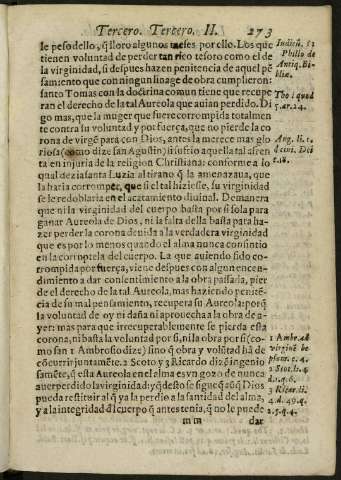 Tercero. Tercero. II. 273
le peso dello, q̃ lloro algunos meses por ello. Los que
tienen voluntad de perder tan rico tesoro como el de
la virginidad, si despues hazen penitencia de aquel pẽ
samiento que con ningun linage de obra cumplieron:
santo Tomas con la doctrina comun tiene que recupe
ran el derecho de la tal Aureola que auian perdido. Di
go mas, que la muger que fuere corrompida totalmen
te contra su voluntad y por fuerça, que no pierde la co
rona de virgẽ parà con Dios, antes la merece mas glo
riosa (como dize san Agustin) si sufrio aquella tal afren
ta en injuria de la religion Christiana: conforme a lo
qual dezia santa Luzia al tirano q̃ la amenazaua, que
la haria corromper, que si el tal hiziesse, su virginidad
se le redoblaria en el acatamiento diuinal. De manera
que ni la virginidad del cuerpo basta por si sola para
ganar Aureola de Dios, ni la falta della basta para ha-
zer perder la corona deuida a la verdadera virginidad
que es por lo menos quando el alma nunca consintio
en la corruptela del cuerpo. La que auiendo sido co-
rrompida por fuerça, viene despues con algun encen-
dimiento a dar consentimiento a la obra passaria, pier
de el derecho de la tal Aureola, mas haziendo penitẽ-
cia de su mal pensamiento, recupera su Aureola: porq̃
la voluntad de oy ni daña ni aprouecha a la obra de a-
yer: mas para que irrecuperablemente se pierda esta
corona, ni basta la voluntad por si, ni la obra por si (co
mo san 1 Ambrosio dize) sino q̃ obra y volũtad hã de
cõcurrir juntamẽte. 2 Scoto y 3 Ricardo dizẽ ingenio
samẽte, q̃ esta Aureola en el alma es vn gozo de nunca
auer perdido la virginidad: y q̃ desto se sigue q̃ aũq̃ Dios
pueda restituir al q̃ ya la perdio a la santidad del alma,
y a la integridad dl cuerpo q̃ antes tenia, q̃ no le puede
m m dar
Philo de
Antiq. Bi-
bliæ.
Tho 1 quod
5. ar. 24.
Ang. li. 1.
d ciui. Dei
c. 18.
1 Ambr. ad
virginẽ la-
psam. c. 4.
2 Scot. li. 4
3 Ricar. li.
4. d. 49. q.
2. 5. q. 4.